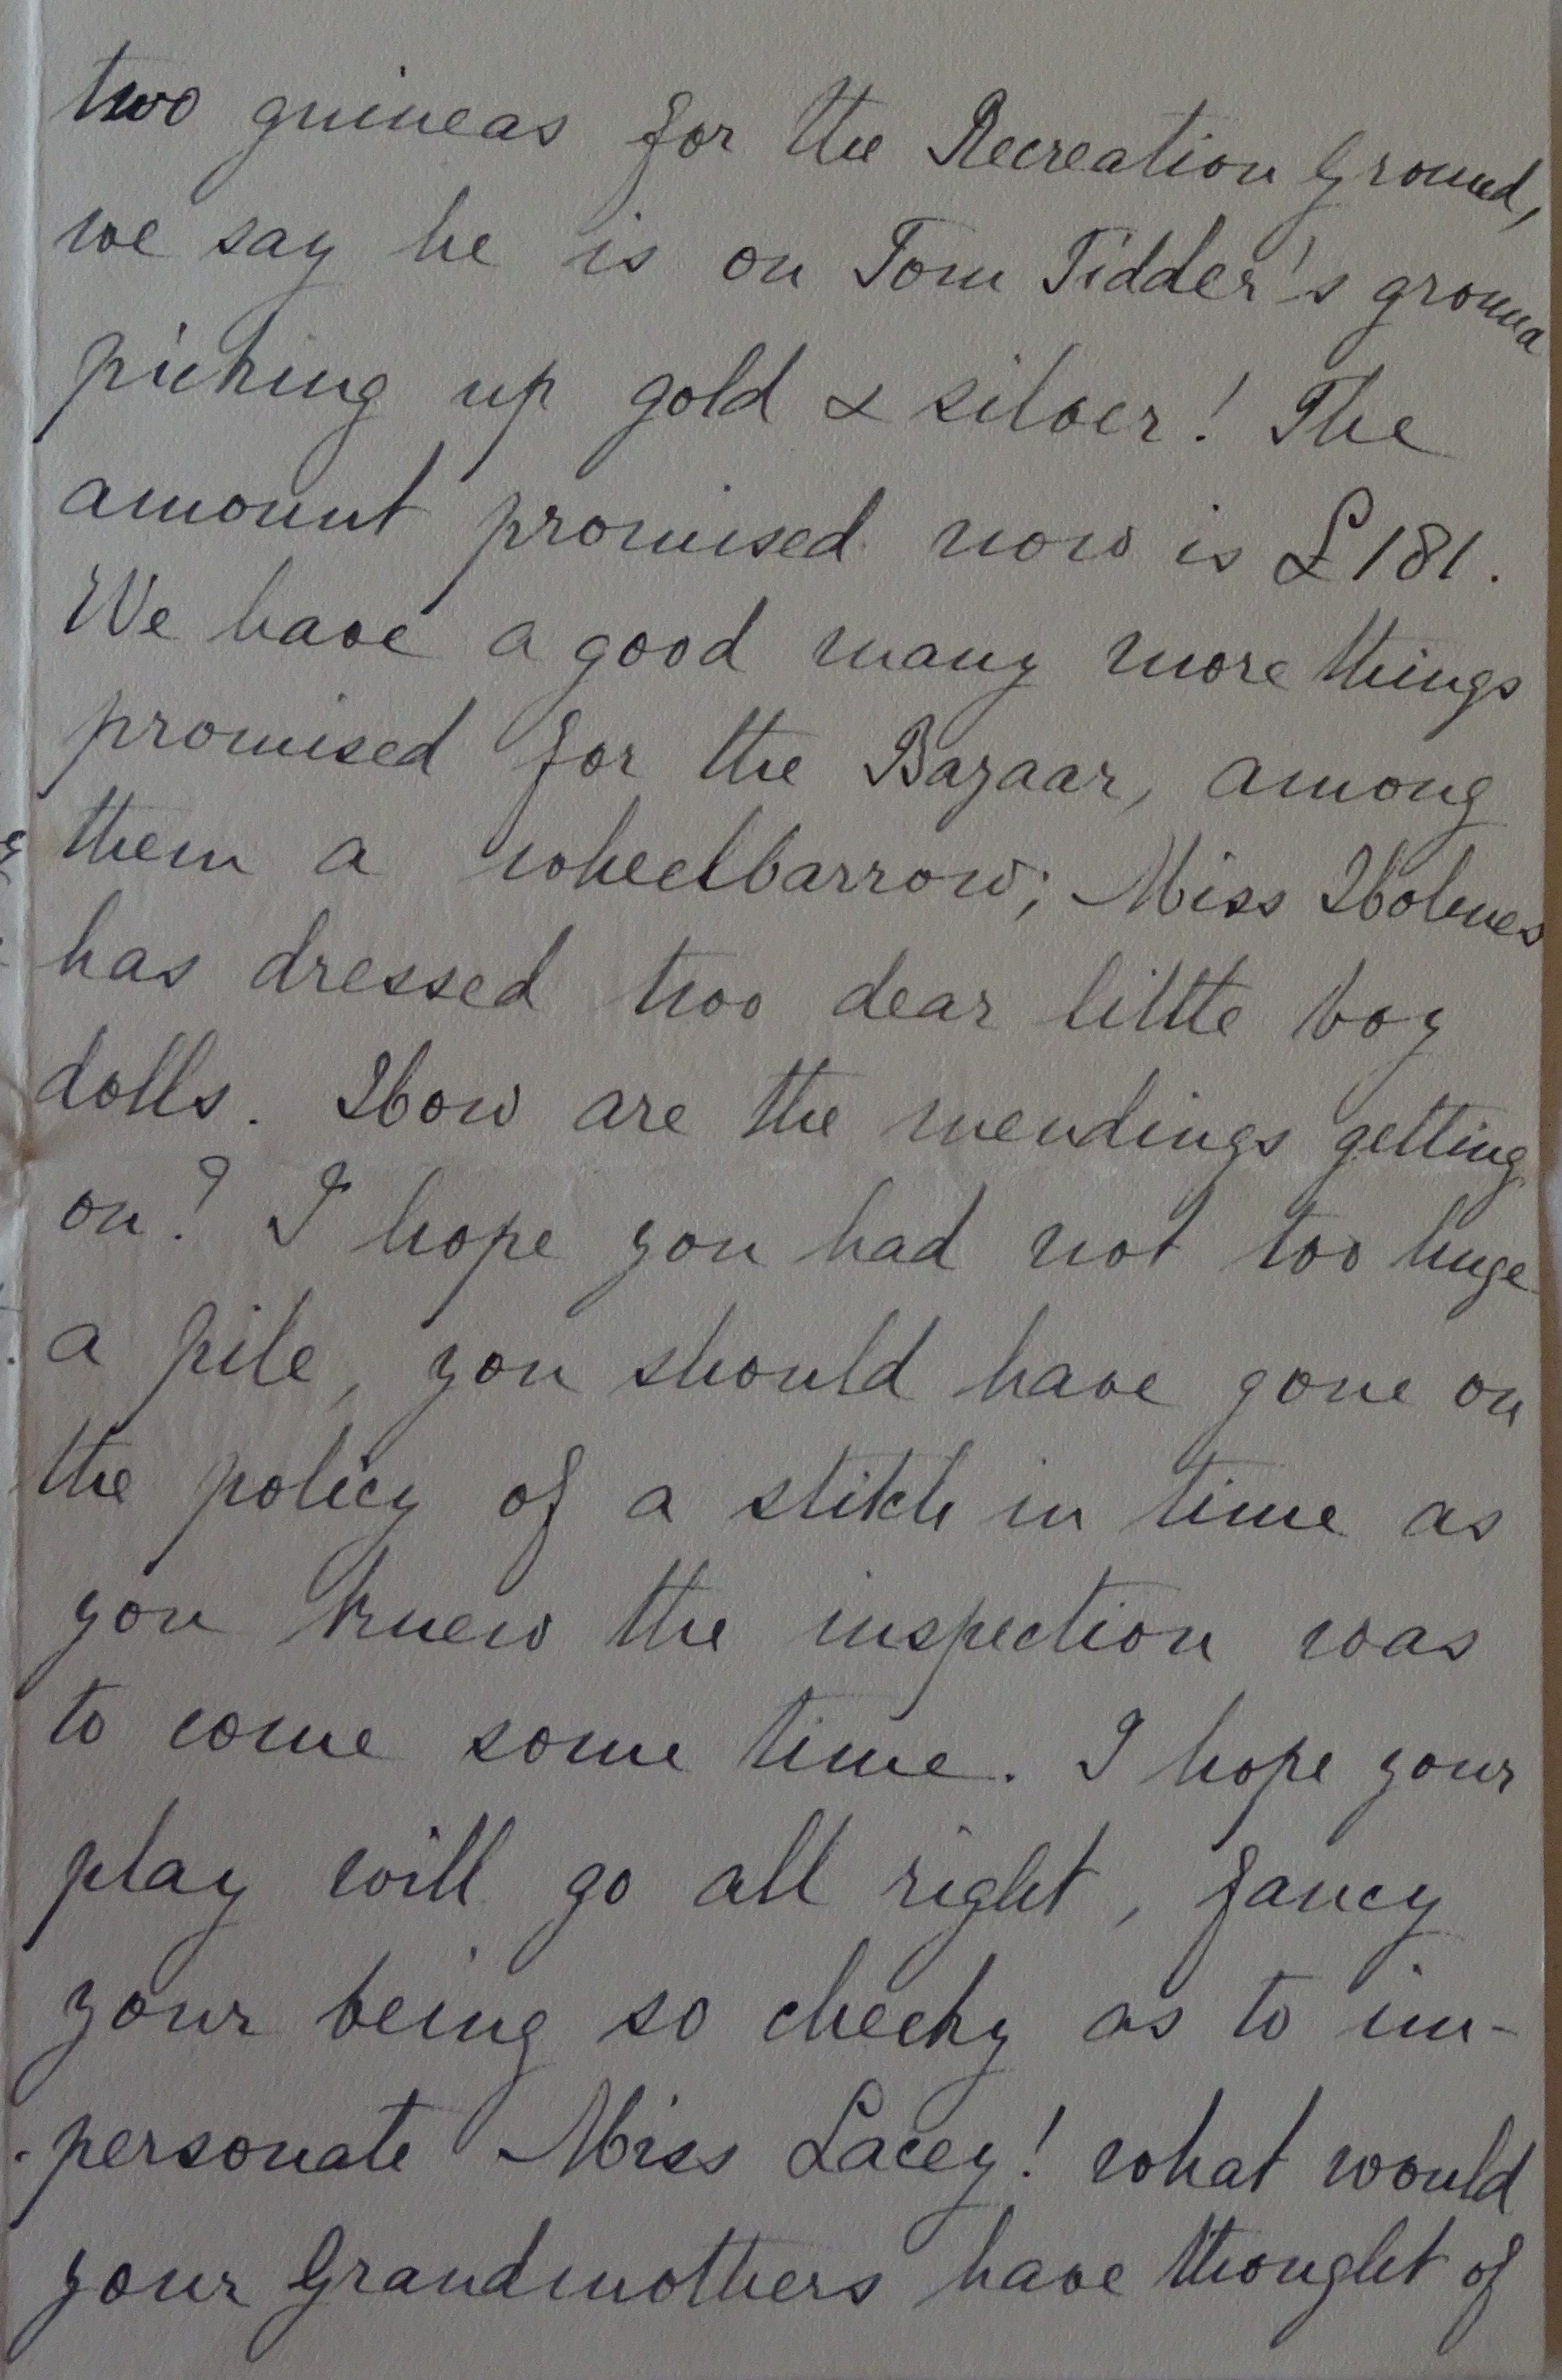 two guineas for the Recreation Ground,
we say he is on Tom Tidder's ground
picking up gold & silver! The
amount promised now is £181.
We have a good many more things
promised for the Bazaar, among
them a wheelbarrow; Miss Holmes
has dressed two dear little boy
dolls. How are the mendings getting
on? I hope you had not too huge
a pile, you should have gone on
the policy of a stitch in time as
you knew the inspection was
to come some time. I hope your
play will go all right, fancy
your being so cheeky as to im-
-personate Miss Lacey! what would
your Grandmothers have thought of